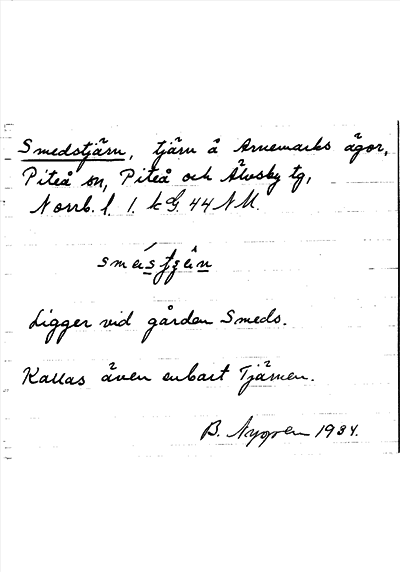 Smedstjärn, tjärn å Arnemarks ägor,
Piteå sn, Piteå och Älvsby tg,
Norrb. l. 1. kG. 44 NU.
Ligger vid gården Smeds.
Kallas även enbart Tjärnen.
B. Nygren 1934.